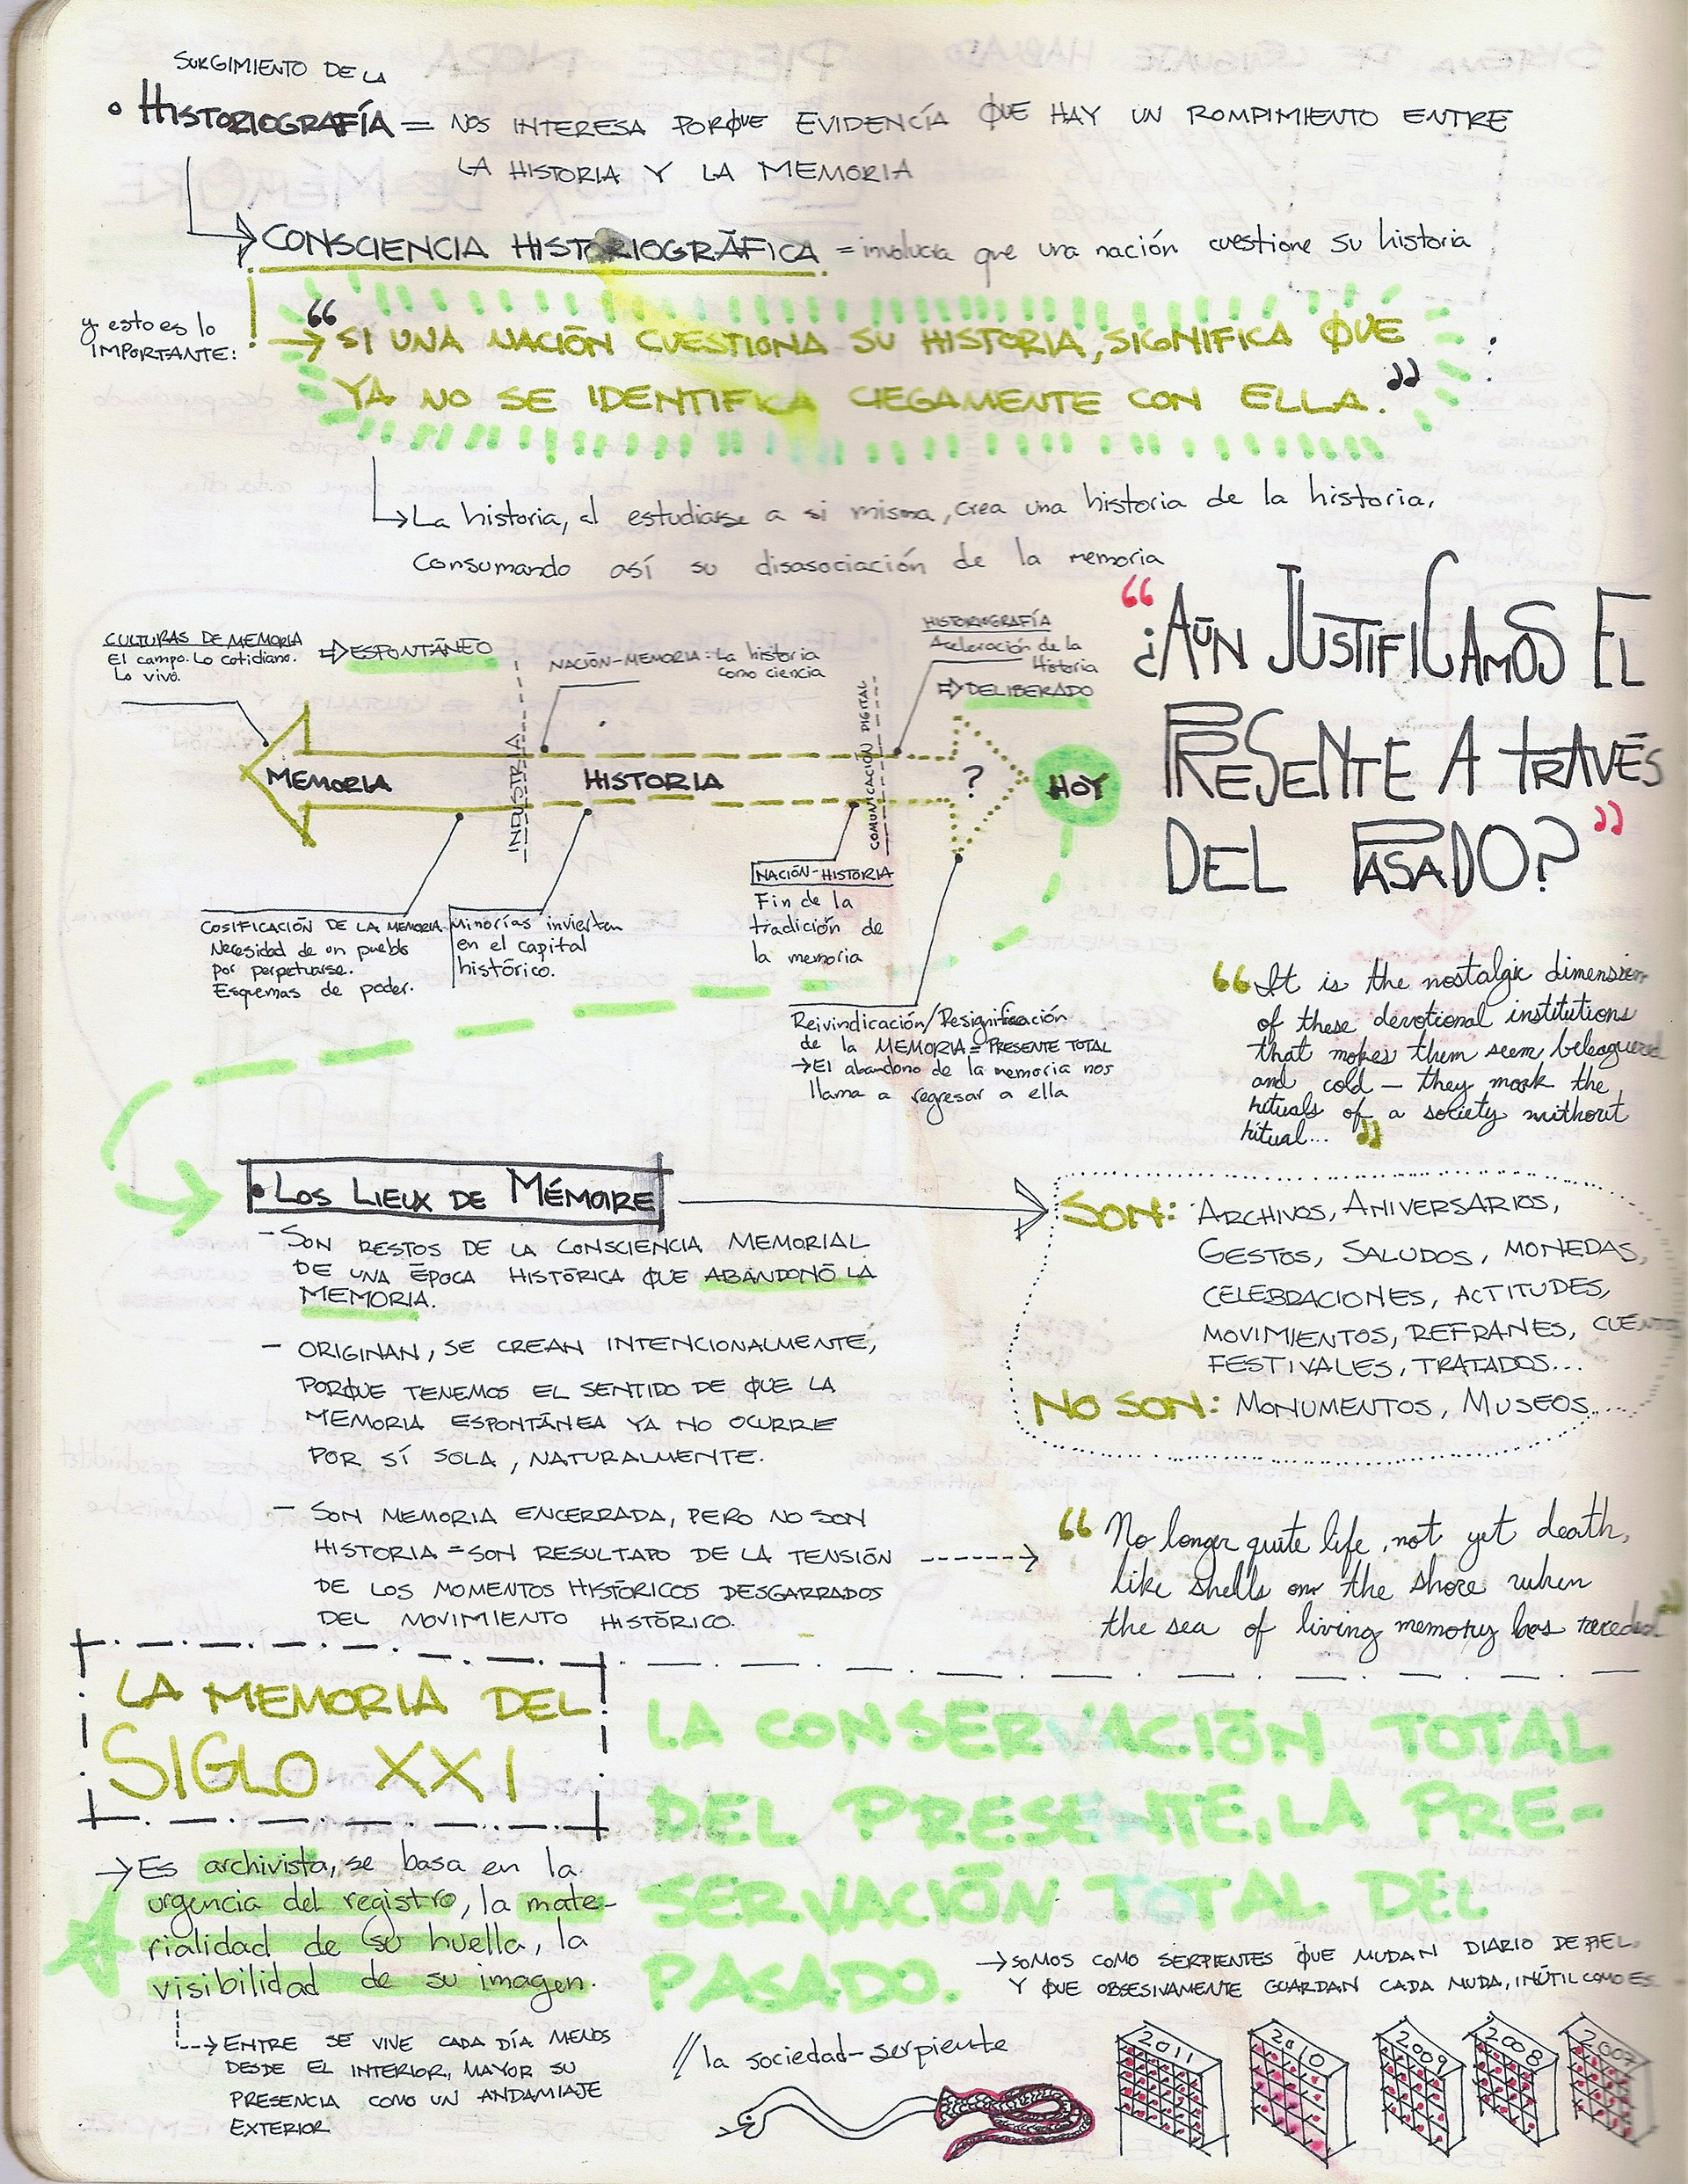 SURGIMIENTO DE LA
• HISTORIOGRAFÍA = NOS INTERESA PORQUE EVIDENCÍA QUE HAY UN ROMPIMIENTO ENTRE
LA HISTORIA Y LA MEMORIA
CONSCIENCIA HISTORIOGRÁFICA = involucra que una nación cuestione su historia
y esto es lo
IMPORTANTE:
“SI UNA NACIÓN CUESTIONA SU HISTORIA, SIGNIFICA QUE
YA NO SE IDENTIFICA CIEGAMENTE CON ELLA.”
La historia, al estudiarse a si misma, crea una historia de la historia,
Consumando así su disasociación de la memoria
CULTURAS DE MEMORIA
El campo. Lo cotidiano.
Lo vivo.
⇒ ESPONTÁNEO
NACIÓN-MEMORIA: La historia
como ciencia
HISTORIOGRAFÍA
Aceleración de la
Historia
⇒ DELIBERADO
MEMORIA
INDUSTRIA
HISTORIA
COMUNICACIÓN DIGITAL
?
HOY
COSIFICACIÓN DE LA MEMORIA
Necesidad de un pueblo
por perpetuarse.
Esquemas de poder.
Minorías invierten
en el capital
histórico.
NACIÓN-HISTORIA
Fin de la
tradición de
la memoria
Reivindicación/Resignificación
de la MEMORIA = PRESENTE TOTAL
→ El abandono de la memoria nos
llama a regresar a ella
“¿AÚN JUSTIFICAMOS EL
PRESENTE A TRAVÉS
DEL PASADO?”
“It is the nostalgic dimension
of these devotional institutions
that makes them seem beleaguered
and cold – they mark the
rituals of a society without
ritual...”
• LOS LIEUX DE MÉMOIRE
– SON RESTOS DE LA CONSCIENCIA MEMORIAL
DE UNA ÉPOCA HISTÓRICA QUE ABANDONÓ LA
MEMORIA.
– ORIGINAN, SE CREAN INTENCIONALMENTE,
PORQUE TENEMOS EL SENTIDO DE QUE LA
MEMORIA ESPONTÁNEA YA NO OCURRE
POR SÍ SOLA, NATURALMENTE.
– SON MEMORIA ENCERRADA, PERO NO SON
HISTORIA = SON RESULTADO DE LA TENSIÓN
DE LOS MOMENTOS HISTÓRICOS DESGARRADOS
DEL MOVIMIENTO HISTÓRICO.
SON: ARCHIVOS, ANIVERSARIOS,
GESTOS, SALUDOS, MONEDAS,
CELEBRACIONES, ACTITUDES,
MOVIMIENTOS, REFRANES,
FESTIVALES, TRATADOS...
NO SON: MONUMENTOS, MUSEOS..
“No longer quite life, not yet death,
like shells on the shore when
the sea of living memory has receded”
LA MEMORIA DEL
SIGLO XXI
→ Es archivista, se basa en la
urgencia del registro, la mate-
rialidad de su huella, la
visibilidad de su imagen.
→ ENTRE SE VIVE CADA DÍA MENOS
DESDE EL INTERIOR, MAYOR SU
PRESENCIA COMO UN ANDAMIAJE
EXTERIOR
LA CONSERVACIÓN TOTAL
DEL PRESENTE, LA PRE-
SERVACIÓN TOTAL DEL
PASADO.
→ SOMOS COMO SERPIENTES QUE MUDAN DIARIO DE PIEL,
Y QUE OBSESIVAMENTE GUARDAN CADA MUDA, INÚTIL COMO ES
// la sociedad-serpiente
2011
2010
2009
2008
2007